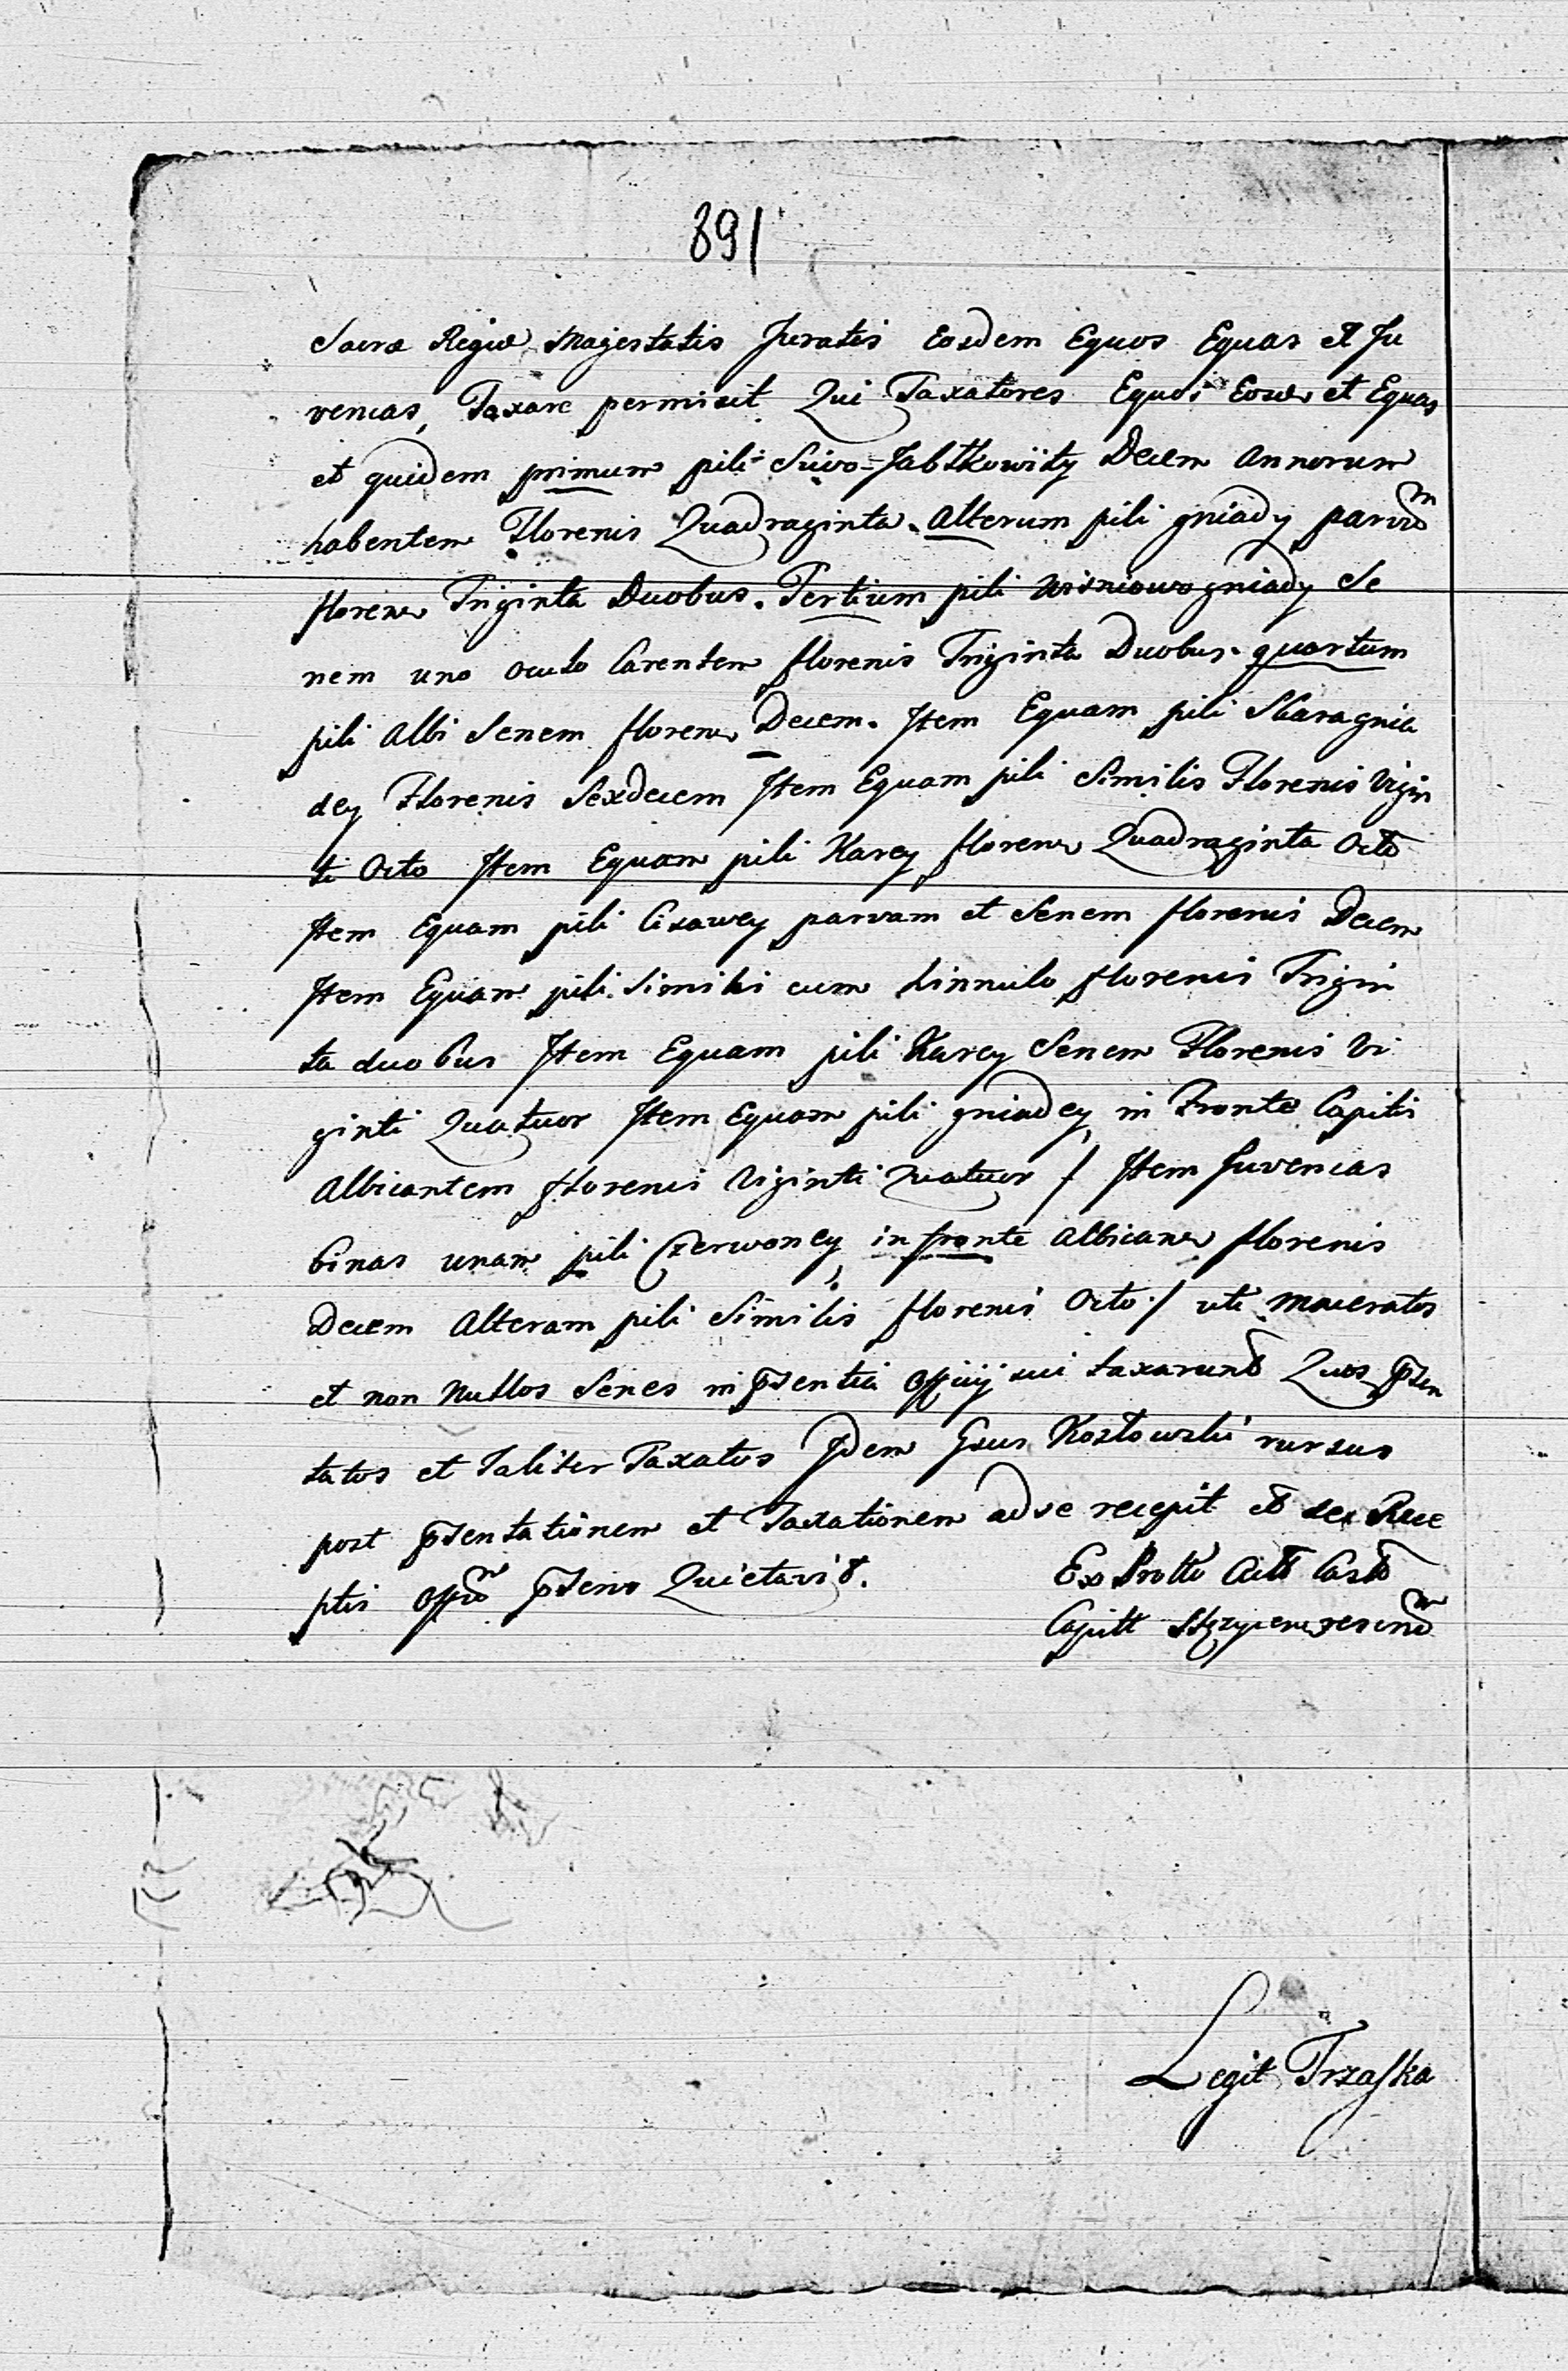 891
Sacræ Regiæ Majestatis Juratis Eosdem Equos Equas et Ju
vencas, Taxare permisit Qui Taxatores Equos et Equas
et quidem primum pili Siwo-Jabłkowity Decem Annorum
habentem Florenis Quadraginta. Alterum pili gniady parvum
floren Triginta Duobus. Tertium pili wisniowo gniady Se
nem uno oculo Carentem florenis Triginta Duobus. quartum
pili Albi Senem floren Decem. Item Equam pili Skaragnia
dey Florenis Sexdecem Item Equam pili Similis Florenis Vigin
ti Octo Item Equam pili Karey floren Quadraginta Octo
Item Equam pili Cisawey parvam et Senem florenis Decem
Item Equam pili Simili cum hinnulo florenis Trigin
ta duobus Item Equam pili Karey Senem Florenis Vi
ginti Quatuor Item Equam pili gniadey in Fronte Capitis
Albicantem florenis Viginti Quatuor / Item Juvencas
binas unam pili Czerwoney in fronte albican florenis
Decem Alteram pili Similis florenis Octo / uti maceratos
et non nullos Senes in pñsentia Officij sui taxarunt Quos pñsen
tatos et Taliter Taxatos Idem Gsus Kozłowski rursus
post pñsentationem et Taxationem ad se recepit et de Rece
ptis Offm pñsens Quietavit. Ex Protho Actt Castr
Capitt
Legit Trzaska